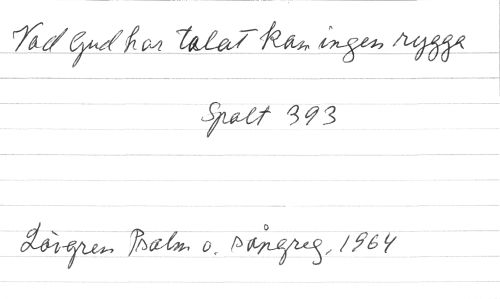 Vad Gud har talat kan ingen rygga
Spalt 393
Lövgren Psalm o. sångreg, 1964